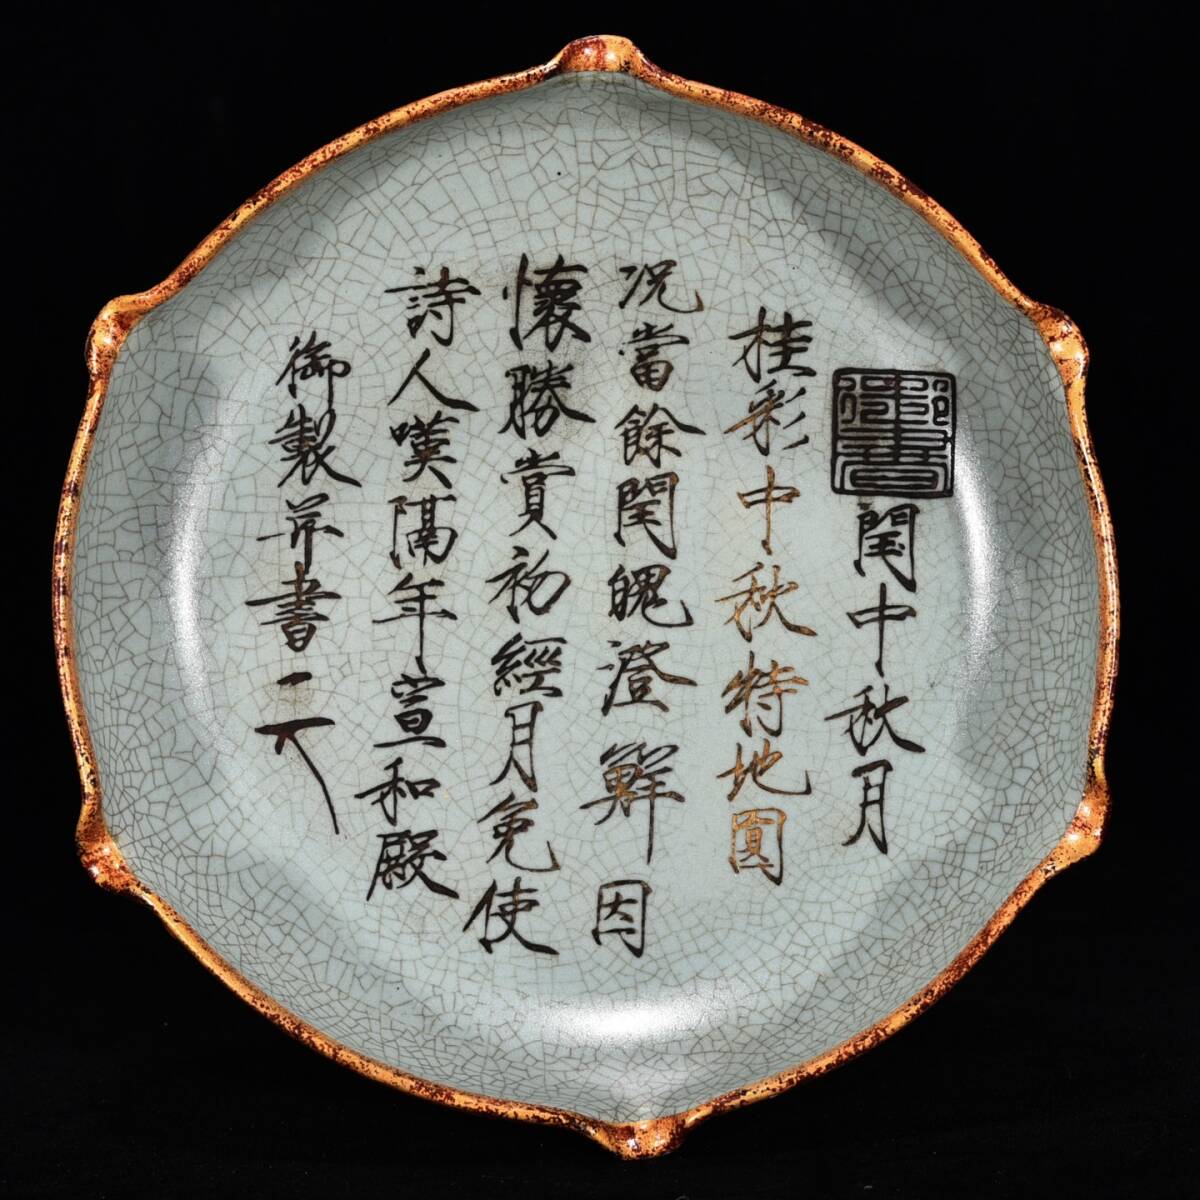 御書
閏中秋月
桂彩中秋特地圓
況當餘閏魄澄鮮因
懷勝賞初經月免使
詩人嘆隔年宣和殿
御製并書